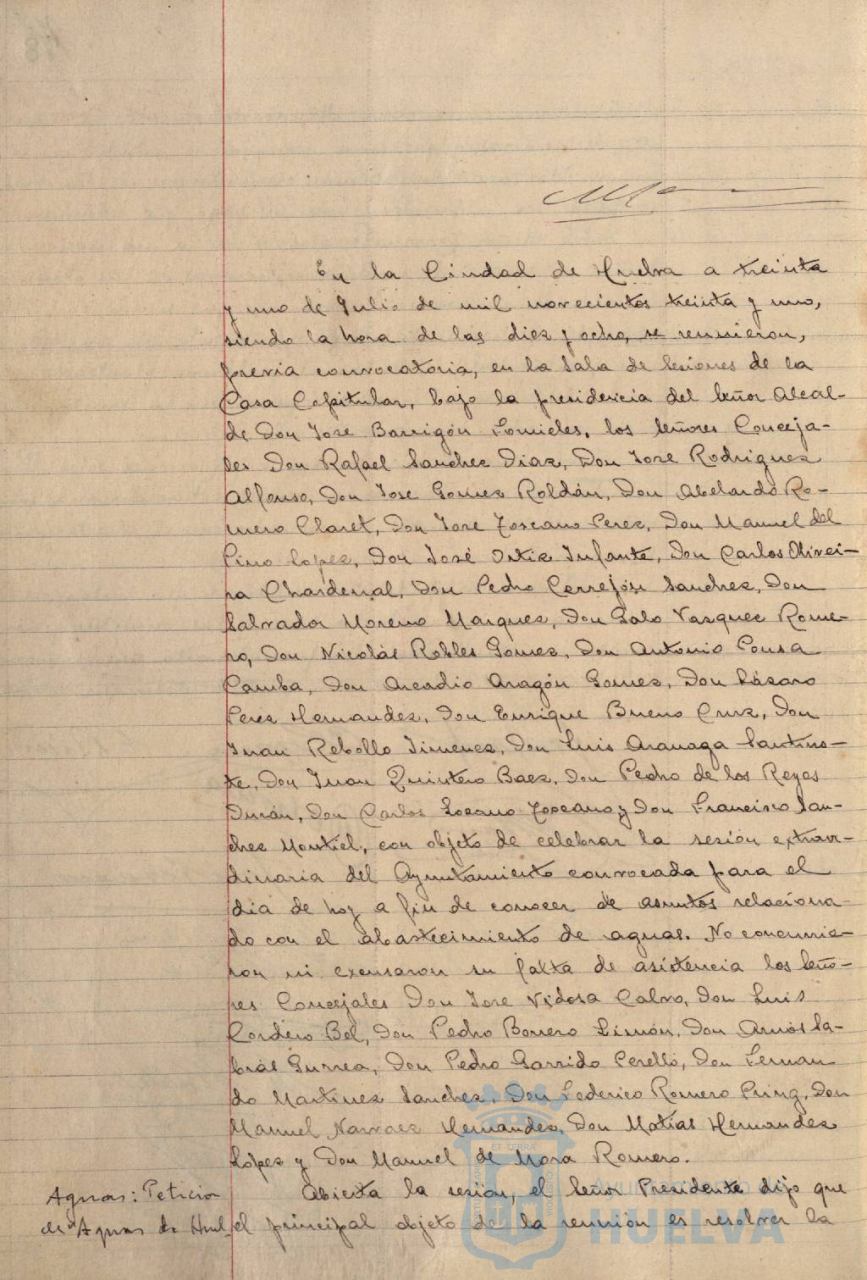 En la Ciudad de Huelva a treinta
y uno de Julio de mil novecientos treinta y uno,
siendo la hora de las diez y ocho, se reunieron,
previa convocatoria, en la Sala de Sesiones de la
Casa Capitular, bajo la presidencia del Señor Alcal-
de Don Jose Barrigón Fornieles, los Señores Conceja-
les Don Rafael Sanchez Diaz, Don Jose Rodriguez
Alfonso, Don Jose Gomez Roldán, Don Abelardo Ro-
mero Claret, Don Jose Toscano Perez, Don Manuel del
Pino Lopez, Don José Ortiz Infante, Don Carlos Olivei-
ra Chardenal, Don Pedro Cerrejón Sanchez, Don
Salvador Moreno Marquez, Don Galo Vazquez Rome-
ro, Don Nicolás Robles Gomez, Don Antonio Pousa
Camba, Don Arcadio Aragón Gomez, Don Lázaro
Perez Hernandez, Don Enrique Bueno Cruz, Don
Juan Rebollo Jimenez, Don Luis Aranaga Santius-
te, Don Juan Quintero Baez, Don Pedro de los Reyes
Durán, Don Carlos Lozano Toscano y Don Francisco San-
chez Montiel, con objeto de celebrar la sesión extraor-
dinaria del Ayuntamiento convocada para el
dia de hoy a fin de conocer de asuntos relaciona-
do con el abastecimiento de aguas. No concurrie-
ron ni excusaron su falta de asistencia los Seño-
res Concejales Don Jose Vidosa Calvo, Don Luis
Cordero Bel, Don Pedro Borrero Limón, Don Amós Sa-
brás Gurrea, Don Pedro Garrido Perelló, Don Fernan
do Martinez Sanchez, Don Federico Romero Pring, Don
Manuel Narvaez Hernandez, Don Matías Hernandez
López y Don Manuel de Mora Romero.
Aguas: Peticion
de Aguas de Huel-
Abierta la sesión, el Señor Presidente dijo que
el principal objeto de la reunión es resolver la
HUELVA